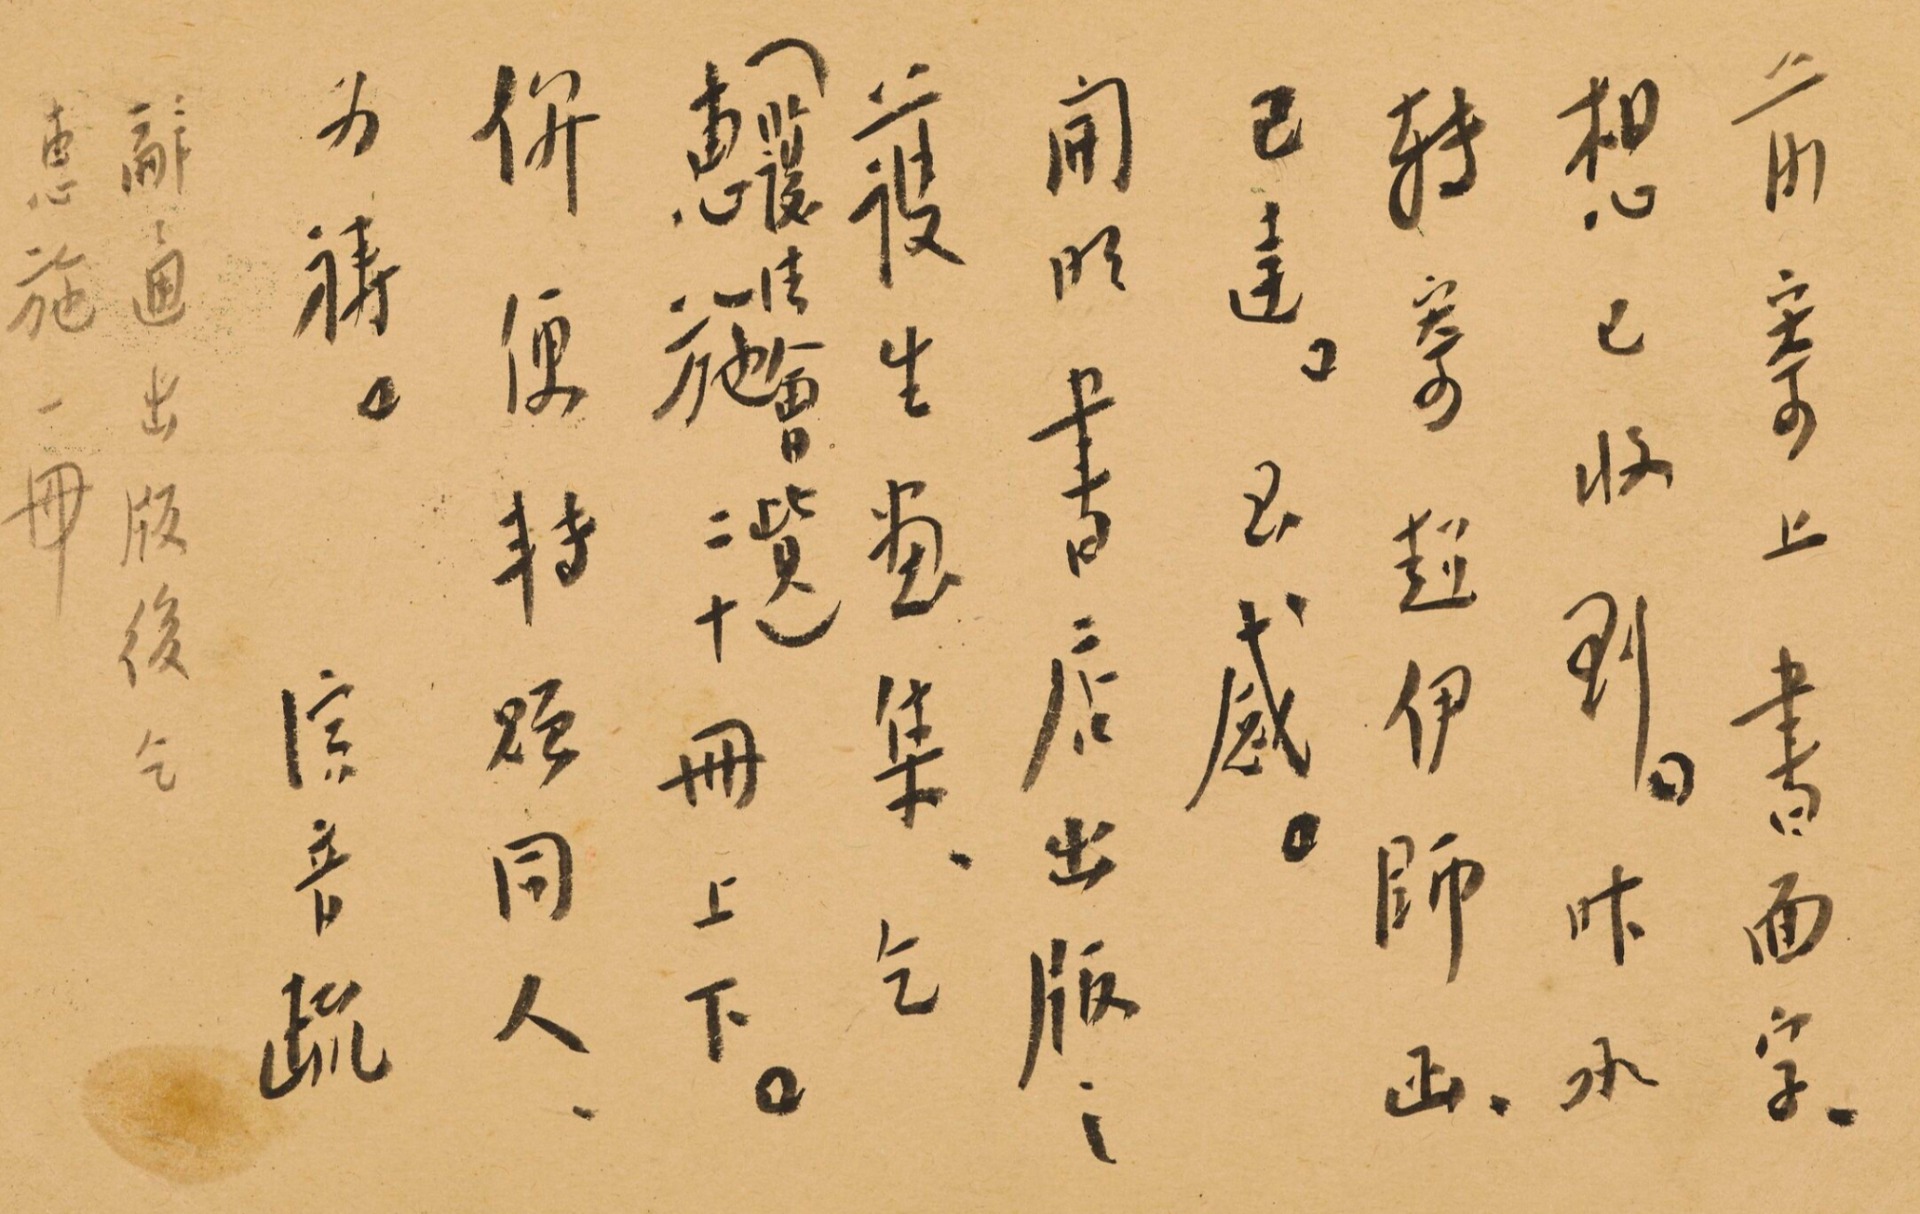 前寄上書面字、
想已收到。昨承
轉寄趙伊師函、
已達。至感。
開明書店出版之
護生畫集、乞
惠施二十冊上下。
併便轉同人、
为禱。 演音疏
辭通出版後乞
惠施一冊